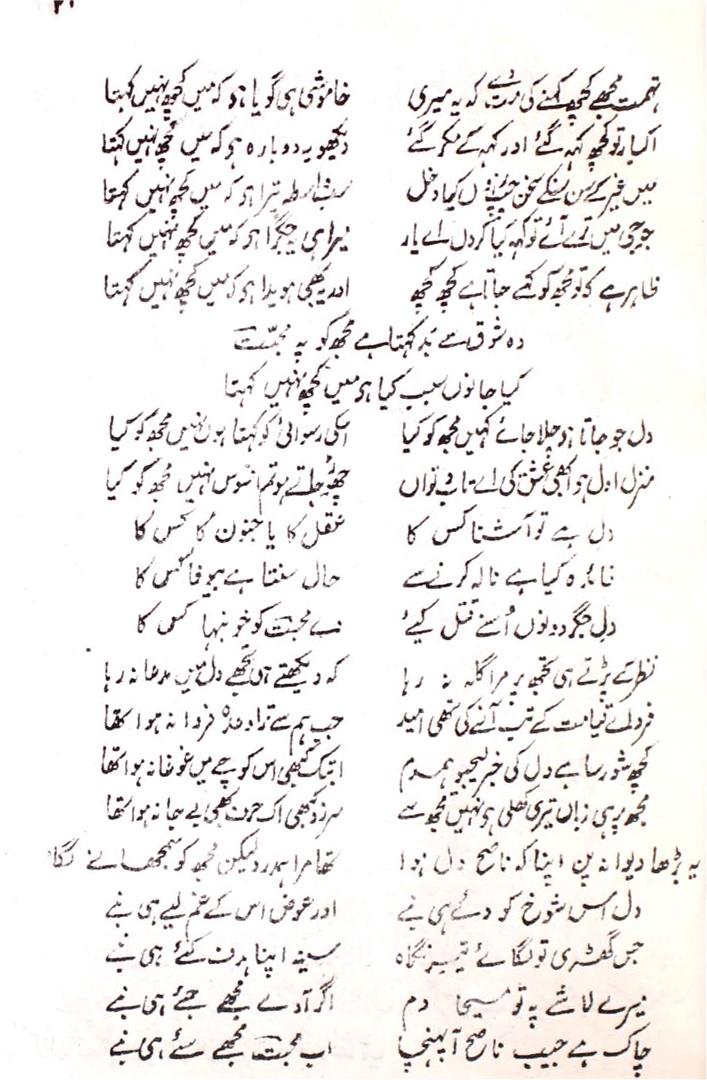 ۲۱
تہمت مجھے کچھ کہنے کی مت دے کہ یہ میری خاموشی ہی گویا ہو کہ میں کچھ نہیں کہتا
اکبار تو کچھ کہہ گئے اور کہہ کے مکر گئے دیکھو یہ دوبارہ ہو کہ میں کچھ نہیں کہتا
میں غیر کے سن سنکے سخن چپ ہوں کیا دخل سب واسطہ تیرا ہو کہ میں کچھ نہیں کہتا
جو جی میں ترے آئے تو کہہ کیا کروں اے یار تیرا ہی یہ جگرا ہو کہ میں کچھ نہیں کہتا
ظاہر ہے کہ تو مجھ کو کہے جاتا ہے کچھ کچھ اور یہ بھی ہویدا ہو کہ میں کچھ نہیں کہتا
وہ شوق سے بد کہتا ہے مجھ کو پہ محبت
کیا جانوں سبب کیا ہو میں کچھ نہیں کہتا
دل جو جاتا ہو چلا جائے کہیں مجھ کو کیا اسکی رسوائی کو کہتا ہوں نہیں مجھ کو کیا
منزل اول ہو ابھی عشق کی اے تاب و تواں چھٹے جاتے ہو تم افسوس نہیں مجھ کو کیا
دل ہے تو آشنا کس کا عقل کا یا جنون کا کس کا
فائدہ کیا ہے نالہ کرنے سے حال سنتا ہے بیوفا کس کا
دل جگر دونوں اُسنے قتل کیے اے محبت کو خونبہا کس کا
نظر کے پڑتے ہی تجھ پر مرا گلہ نہ رہا کہ دیکھتے ہی تجھے دل میں مدعا نہ رہا
فرداے قیامت کے تب آنے کی تھی امید جب ہم سے ترا وعدہ فردا نہ ہوا تھا
کچھ شور سا ہے دل کی خبر لیجیو ہمدم ابتک کبھی اس کوچے میں غوغا نہ ہوا تھا
مجھ پر ہی زباں تیری کھلی ہو نہیں مجھ سے سرزد کبھی اک حرف بھی بے جا نہ ہوا تھا
یہ بڑھا دیوانہ پن اپنا کہ ناصح دل ہوا تھا مرا ہمدرد لیکن مجھ کو سمجھانے لگا
دل اس شوخ کو دئے ہی بنے اور عوض اس کے غم لیے ہی بنے
جس گھڑی تو لگائے تیر نگاہ سینہ اپنا ہدف کئے ہی بنے
تیرے لاشے پہ تو مسیحا دم اگر آوے مجھے جئے ہی بنے
چاک ہے جیب ناصح آپہنچا اب محبت مجھے سئے ہی بنے